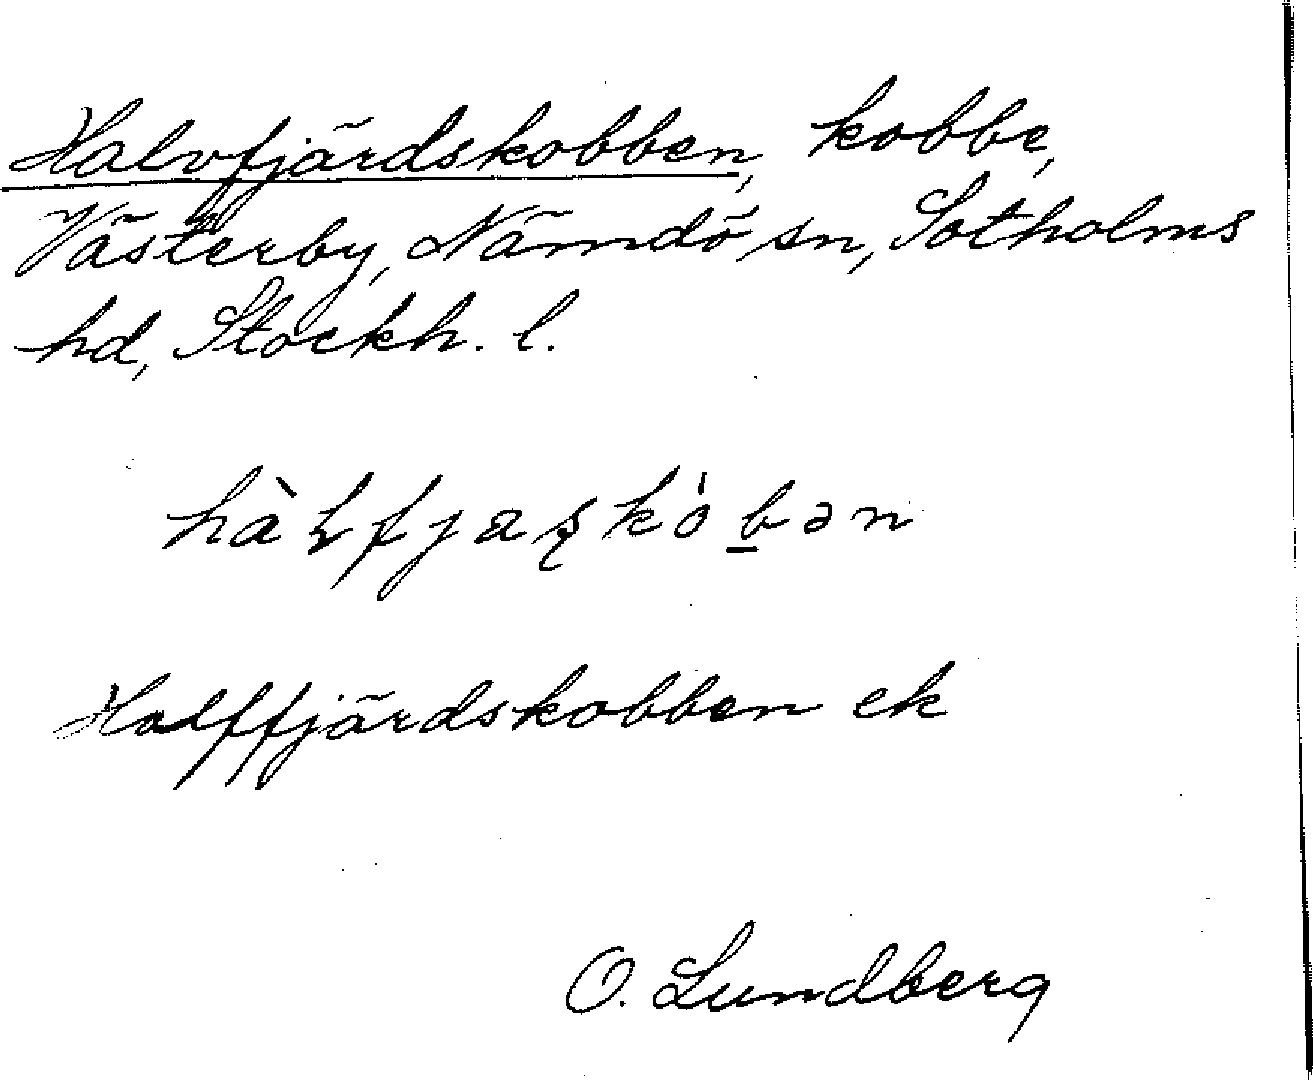 Halvfjärdskobben, kobbe,
Västerby, Nämdö sn, Sotholms
hd, Stockh. l.
hàɫfjaʂkȯb̲ən
Halffjärdskobben ek
O. Lundberg